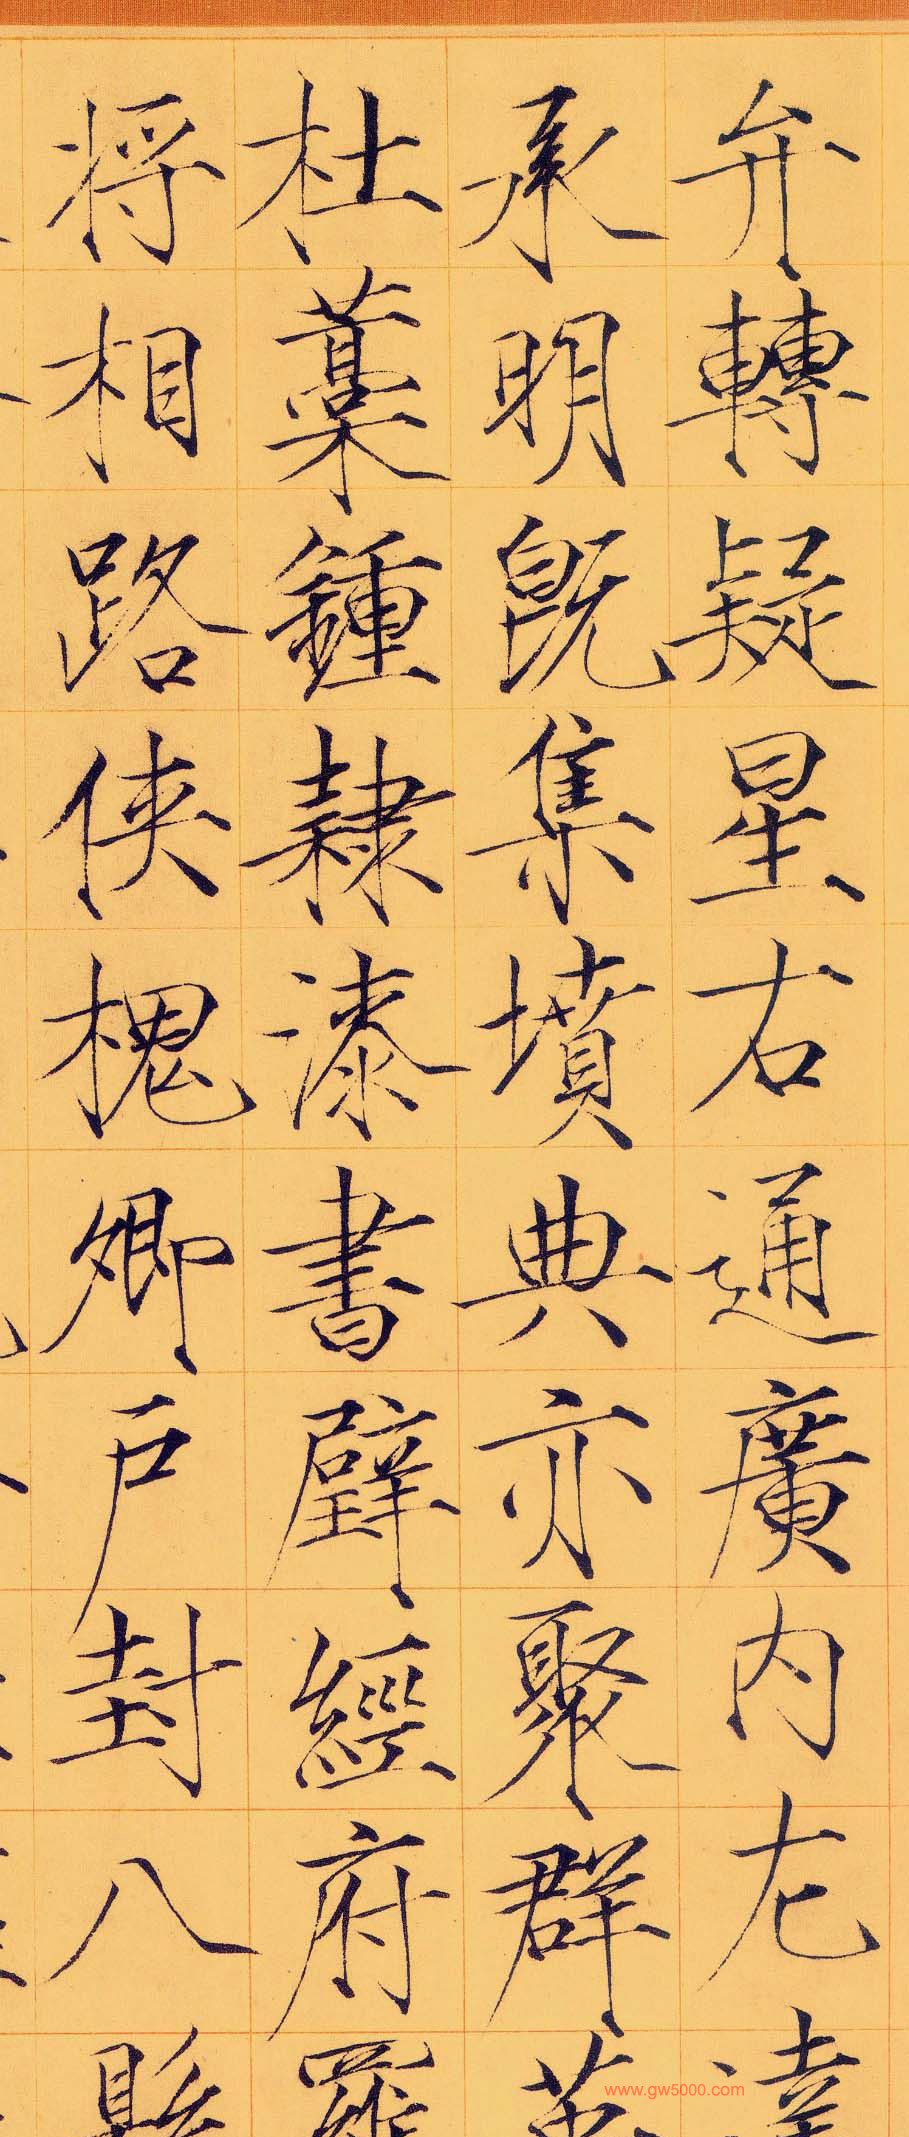 弁轉疑星右通廣内左達
承明既集墳典亦聚群英
杜藁鍾隸漆書壁經府羅
将相路俠槐卿户封八縣
www.gw5000.com